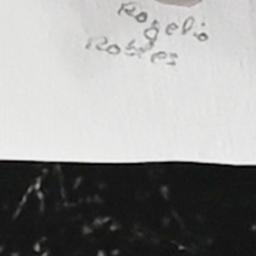 Rogelio
Robles